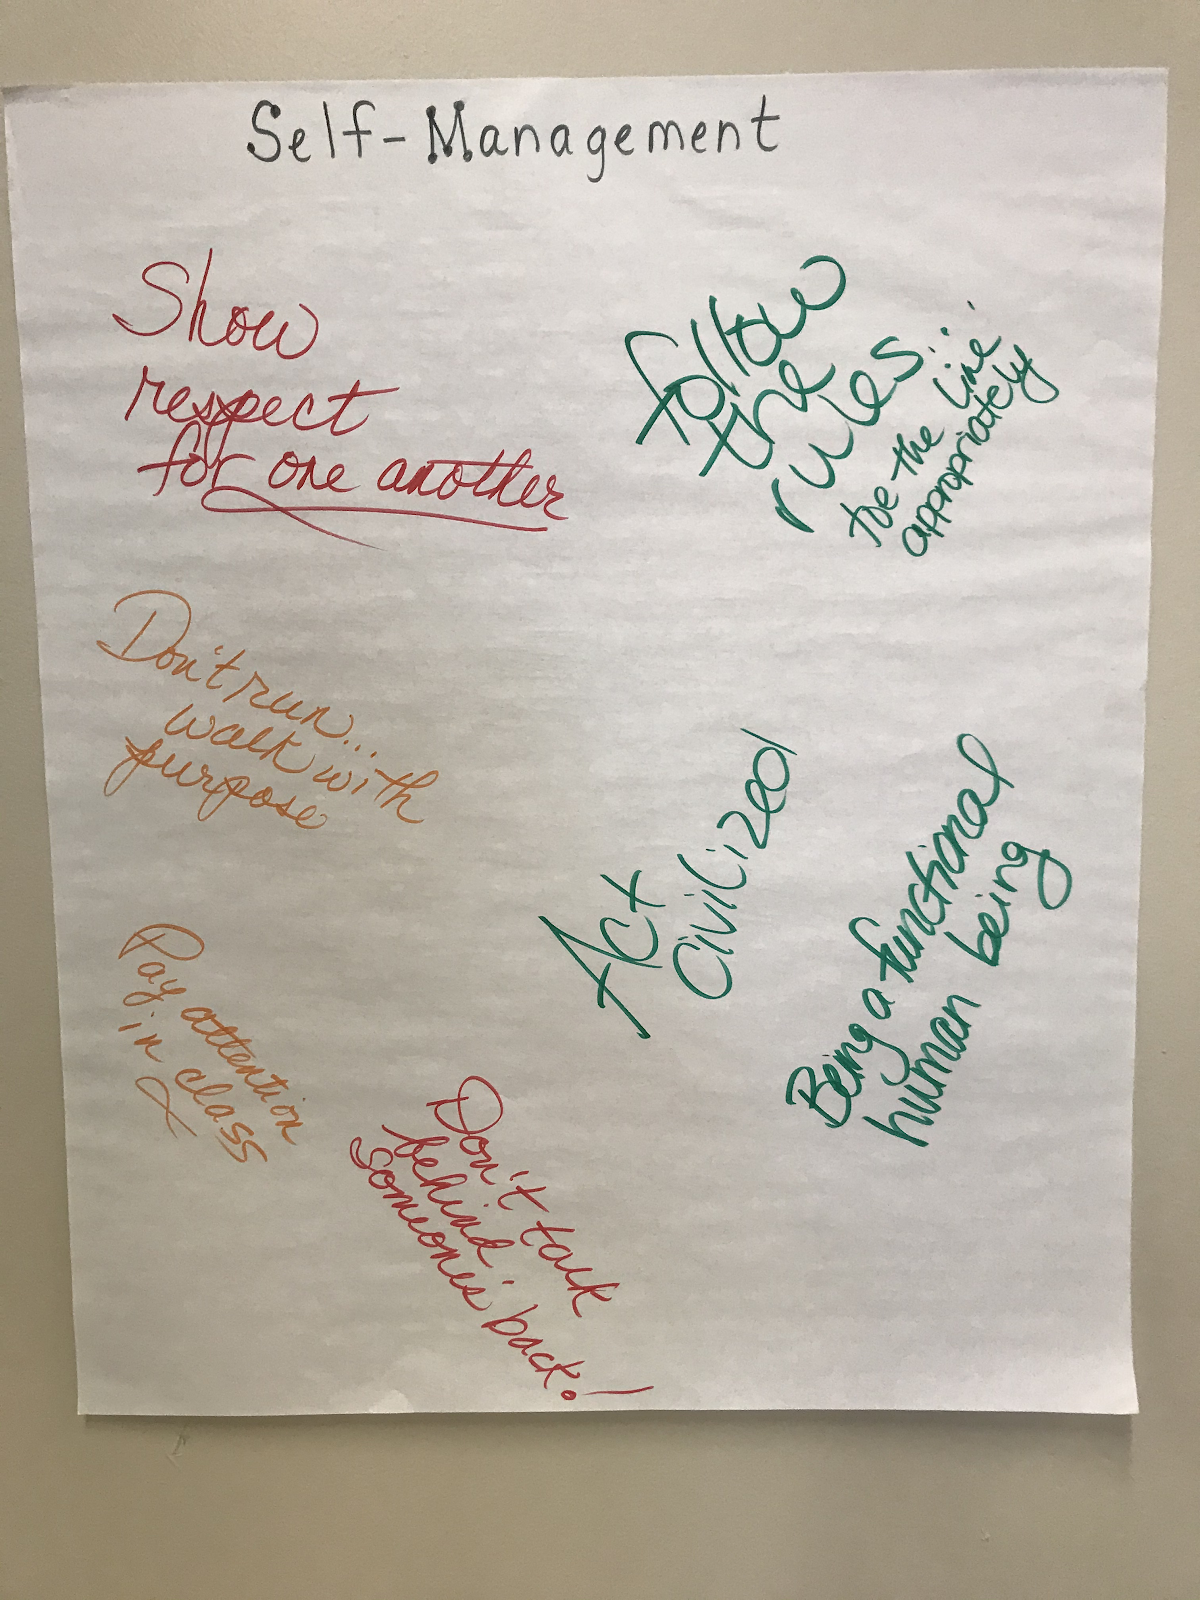 Self-Management
Show
respect
for one another
follow
the
rules...
toe the line
appropriately
Don't run...
walk with
purpose
Act
Civilized
Being a functional
human being
Pay attention
in class
Don't talk
behind
someone's back!